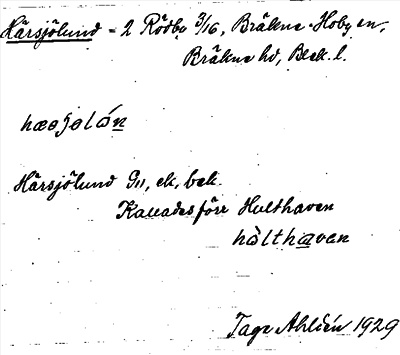 Härsjölund - 2 Rödby 3/16, Bräkne-Hoby sn,
Bräkne hd, Blek. l.
hæσʃəlón
Härsjölund Gd, ek, bek.
Kallades förr Hulthaven
hòlthaven
Tage Ahldén 1929